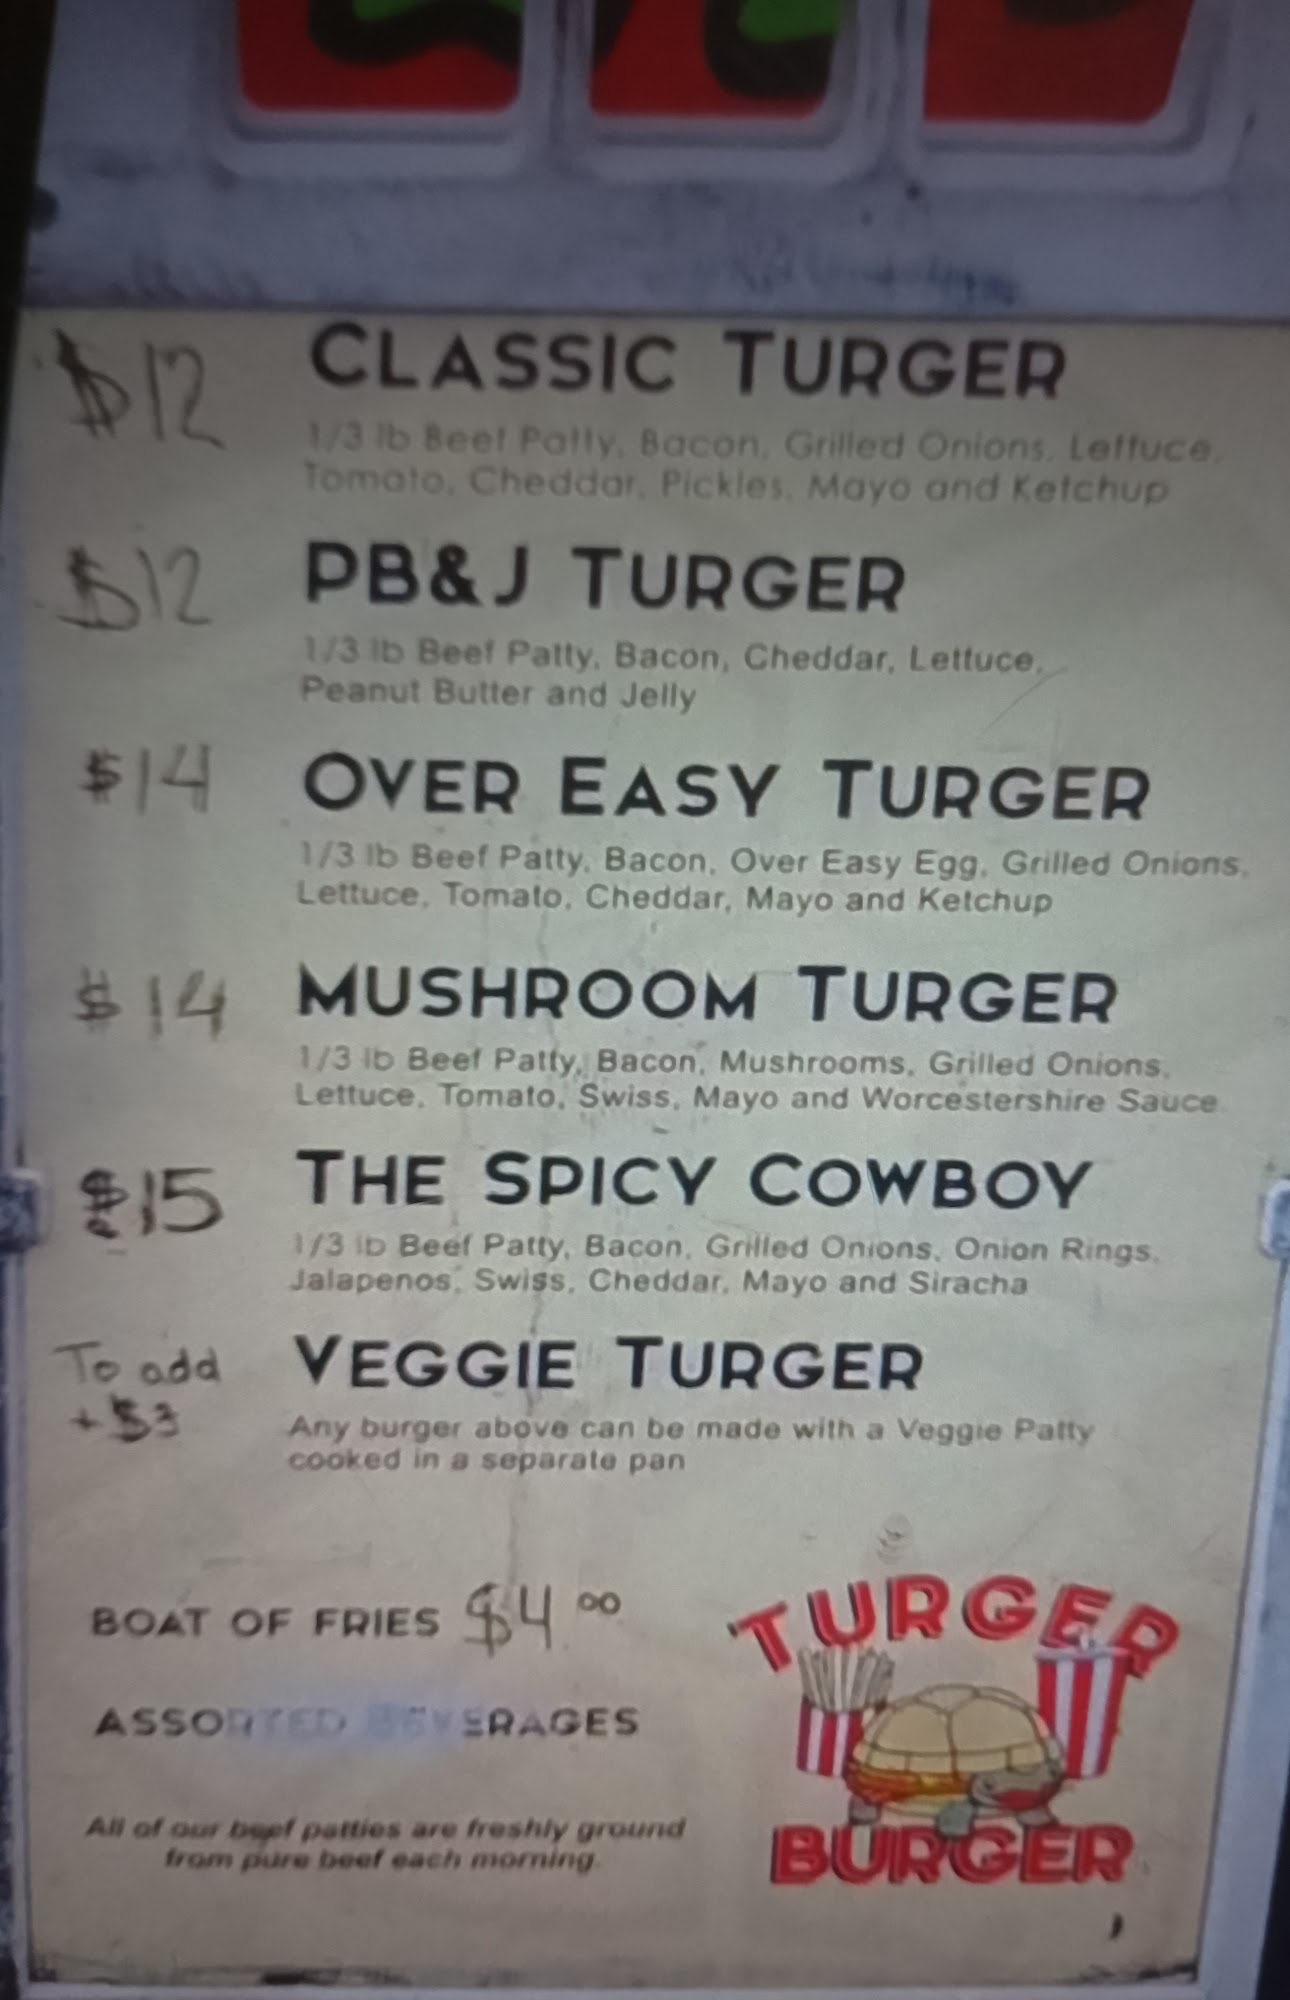 $12 CLASSIC TURGER
1/3 lb Beef Patty, Bacon, Grilled Onions, Lettuce,
Tomato, Cheddar, Pickles, Mayo and Ketchup
$12 PB&J TURGER
1/3 lb Beef Patty, Bacon, Cheddar, Lettuce,
Peanut Butter and Jelly
$14 OVER EASY TURGER
1/3 lb Beef Patty, Bacon, Over Easy Egg, Grilled Onions,
Lettuce, Tomato, Cheddar, Mayo and Ketchup
$14 MUSHROOM TURGER
1/3 lb Beef Patty, Bacon, Mushrooms, Grilled Onions,
Lettuce, Tomato, Swiss, Mayo and Worcestershire Sauce
$15 THE SPICY COWBOY
1/3 lb Beef Patty, Bacon, Grilled Onions, Onion Rings,
Jalapenos, Swiss, Cheddar, Mayo and Siracha
To add VEGGIE TURGER
+ $3 Any burger above can be made with a Veggie Patty
cooked in a separate pan
BOAT OF FRIES $4.00
ASSORTED BEVERAGES
All of our beef patties are freshly ground
from pure beef each morning.
TURGER
BURGER